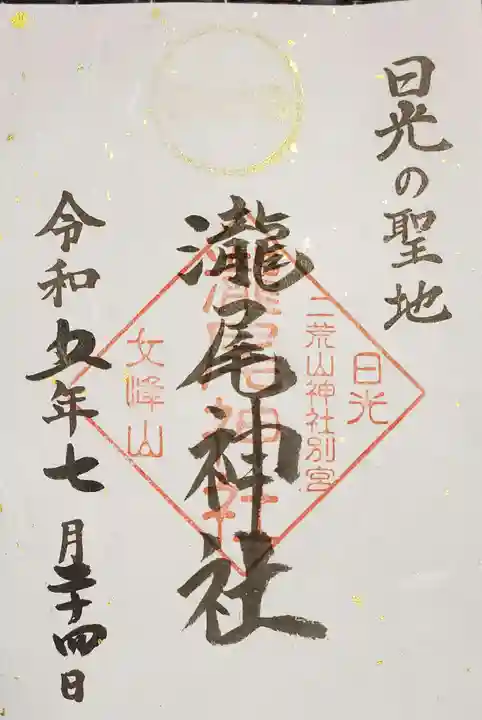 日光の聖地
日光
二荒山神社別宮
瀧尾神社
瀧尾神社
女峰山
令和五年七月二十四日